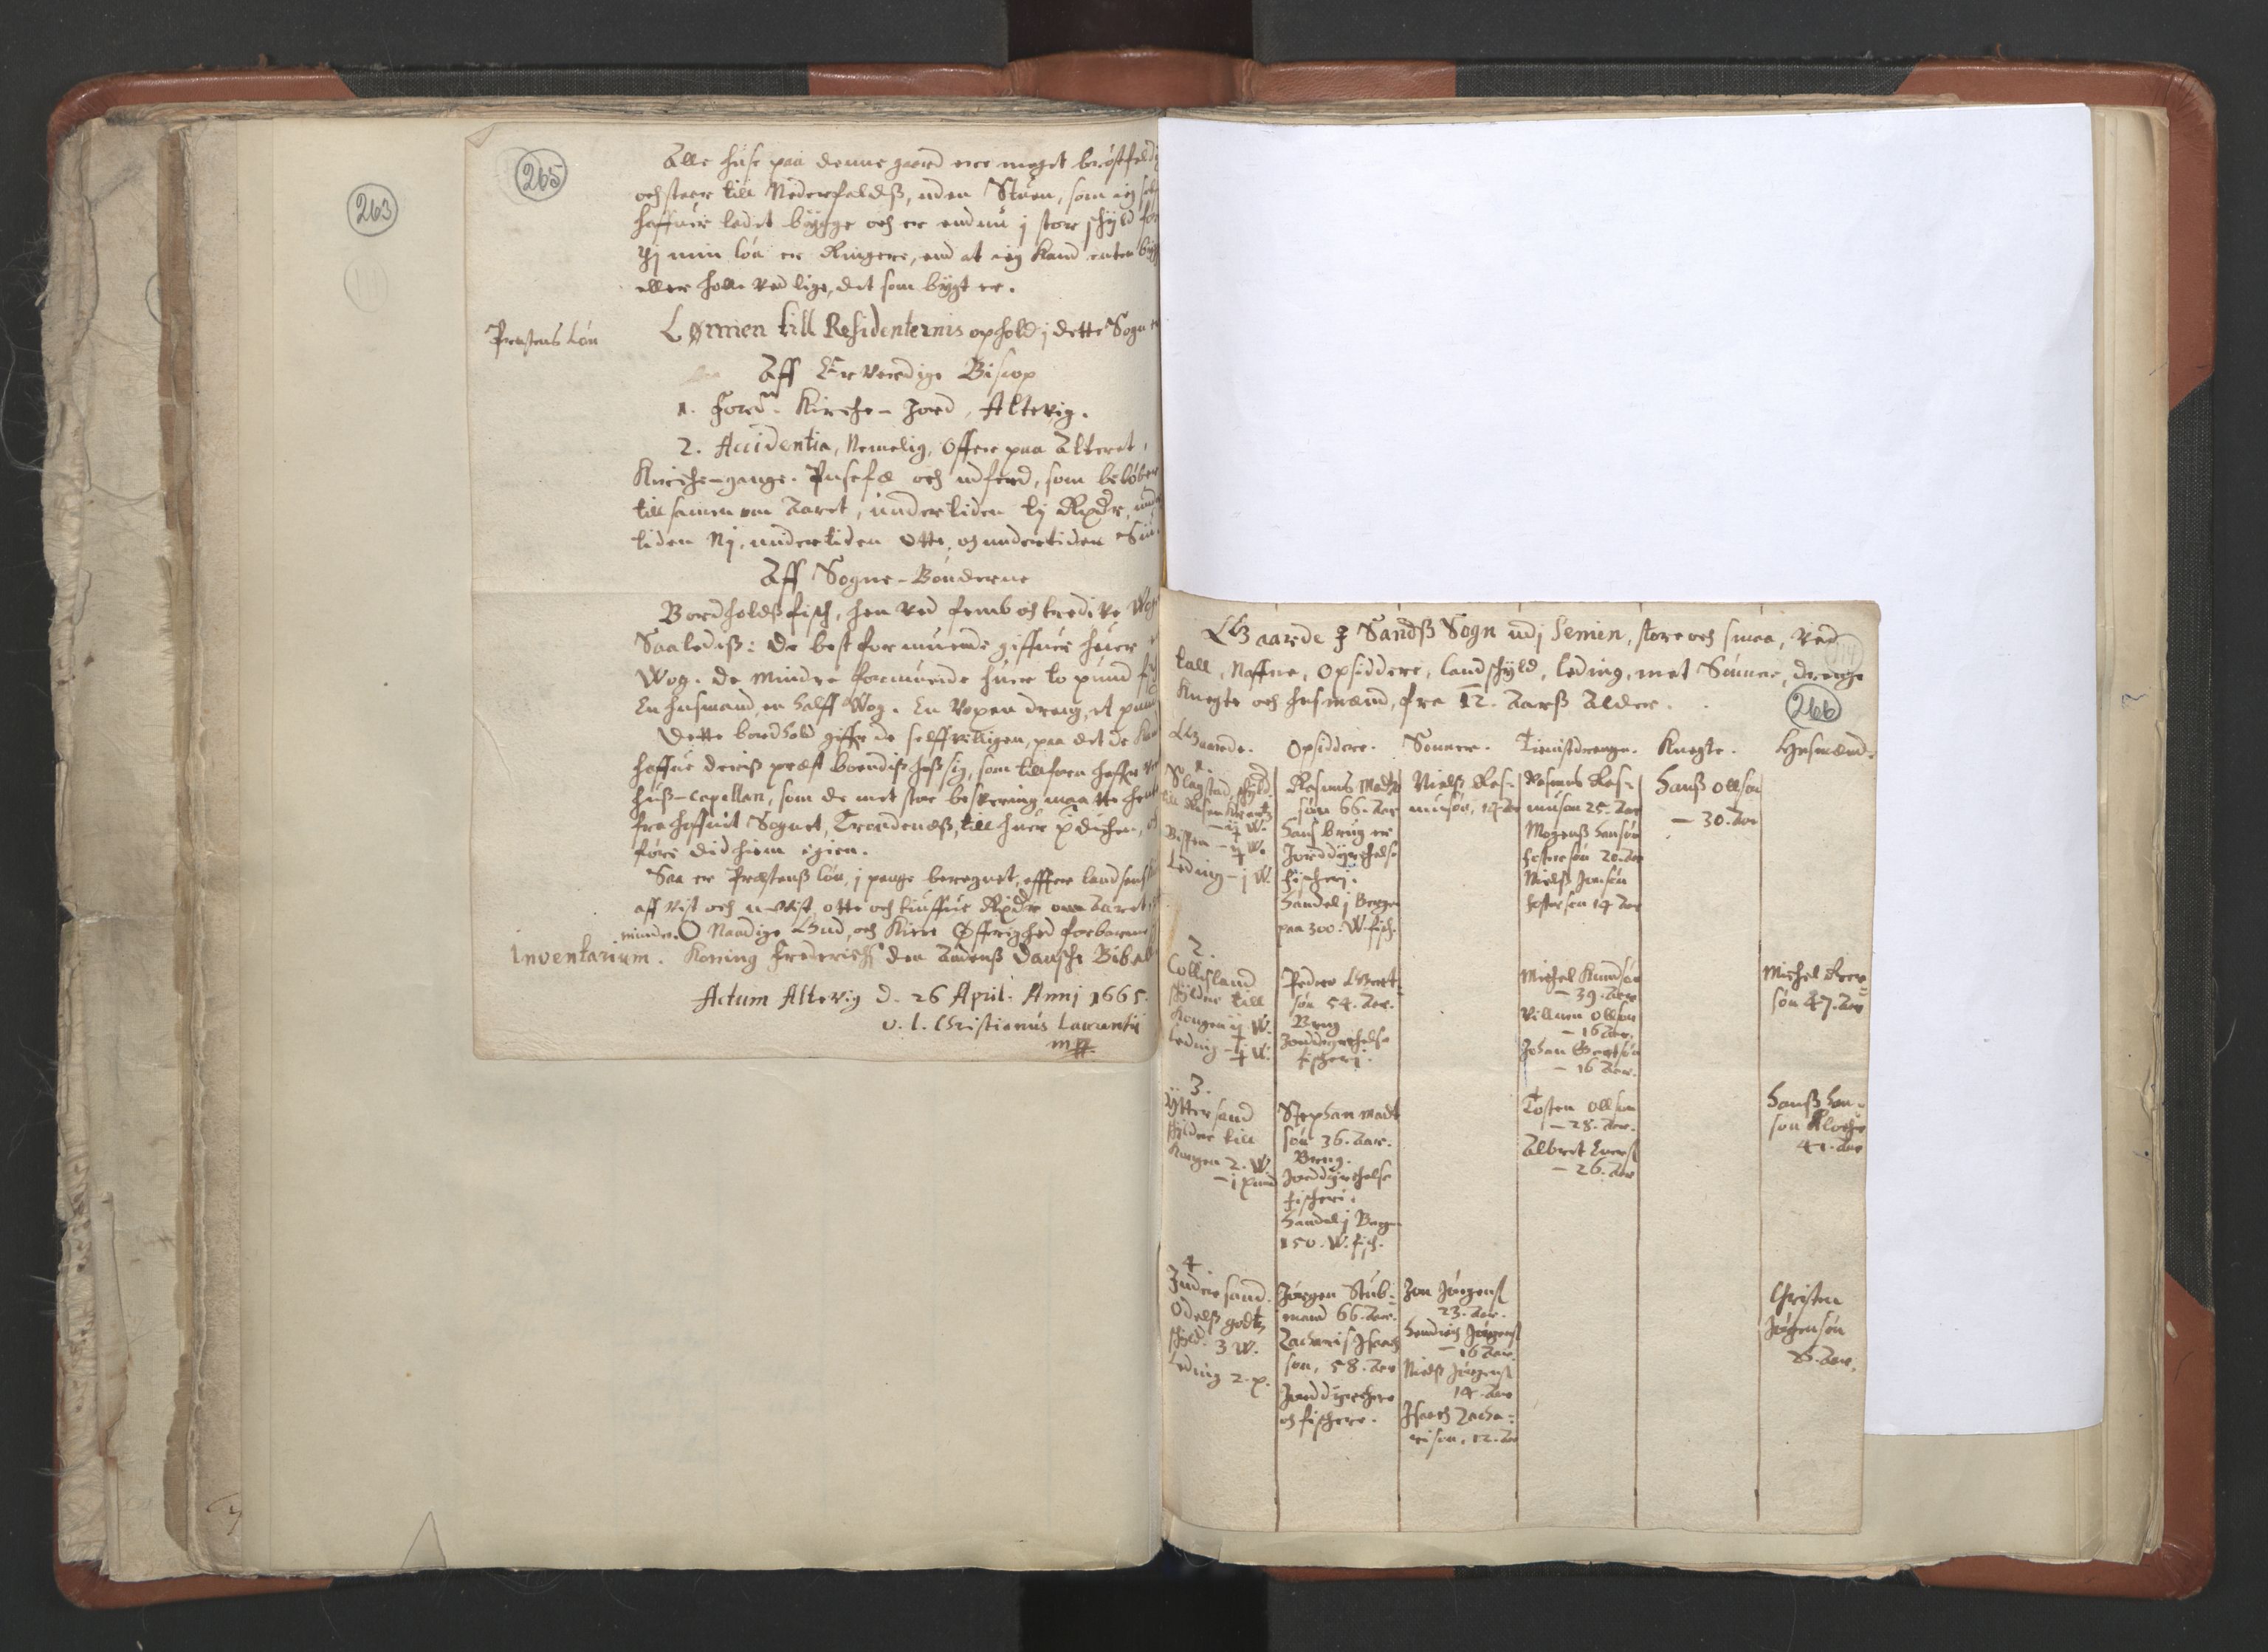 263
265
Alle huse paa denne gaard ere meget brøstfeldi
och staar till Nederfaldß, uden Stuen, som ieg
haffuer ladet bygge och er endnu i stor schyld for
thj min løn er Ringere, end at ieg kand enten byg
eller holle ved lige, det som bygt er.
Præstens Løn
Lønnen till Residenternis ophold i dette Sogn er
Aff Erverdige Biscop
1. Ford: Kirche-Jord, Altevig.
2. Accidentia, Nemelig, Offer paa Alteret,
Kirche-gange. Pusefæ och udferd, som beløber
till samen om Aaret, undertiden tj Rixdr, und
tiden Nj, undertiden Otte, og undertiden Siu.
Aff Sogne-Bønderne
Bordholdß fisch, hen ved femb och tredive Wog
Saaledis: De best formuende giffuer huer
Wog. De Mindre formuende huer to pund
En husmand, en halff Wog. En Voxen dreng, et pund
Dette bordhold giffr de selffvilligen, paa det de kand
haffue deris præst boendiß hoß sig, som tillforn haffr
huß-Capellan, som de met stor besvering maatte hente
fra hoffuit Sognet, Trondenæß, till huer prædichen,
føre did hiem igien.
Saa er Præstenß løn, i penge beregnet, effter landsens
aff vist och u-vist, otte och tiuffue Rixdr om Aaret
minder. O Naadige Gud, och Kiere Øffrighed forbarme
Inventarium. Koning Frederichß den Andenß Dansche Bibel
Actum Altevig d. 26 April. Annj 1665.
v. l. Christianus Laurentij
mpp.
Gaarde i Sandß Sogn udj Senien, store och smaa, ved
tall, Naffne, Opsiddere, landschyld, leding, met Sønner, drenge
Knegte och husmænd, fra 12. Aarß Alder.
266
Gaarde. Opsiddere. Sønner. Tienistdrenge. Knegte. Husmænd.
1.
Slagstad, schyld.
Bispen
Leding - j W.
Rasmus Mads
søn 66. Aar
hans brug er
Jorddyrchelse
fischerj.
handel j Bergen
paa 300. W. fisch.
Nielß Ras-
musøn, 17. Aar
Rasmus Ras-
musøn 25. Aar
Mogenß Hansøn
fostersøn 20. Aar
Nielß Jensøn
fostersøn 14 Aar
Hanß Ollsøn
- 30. Aar
2.
schylder till
Kongen
Leding
Peder
søn 54. Aar.
Brug
Jorddyrchelse
fischerj.
Michel Knudsøn
- 39. Aar
Villum Ollsøn
- 16 Aar.
Johan
- 16 Aar.
Michel
søn 47. Aar
3.
Yttersand
schylder till
Kongen 2. W.
- j pund
Stephan Mads
søn 36. Aar.
Brug.
Jorddyrchelse
fischeri.
handel j Bergen
150. W. fisch.
Tosten Ollsøn
- 28. Aar.
Albret
- 26. Aar
Hanß
søn Klocher
41. Aar
4.
Indresand.
Odelß godtz
schyld. 3 W.
Leding 2. p.
Jørgen Stub-
mand 66. Aar.
Zacharis Isach
søn, 58. Aar
Jorddyrchere
och fischere.
Jon Jørgenß
23. Aar.
Hendrich Jørgenß
- 16 Aar.
Nielß Jørgenß
14. Aar
Isach Zacha-
risøn, 12. Aar
Christen
Jørgensøn